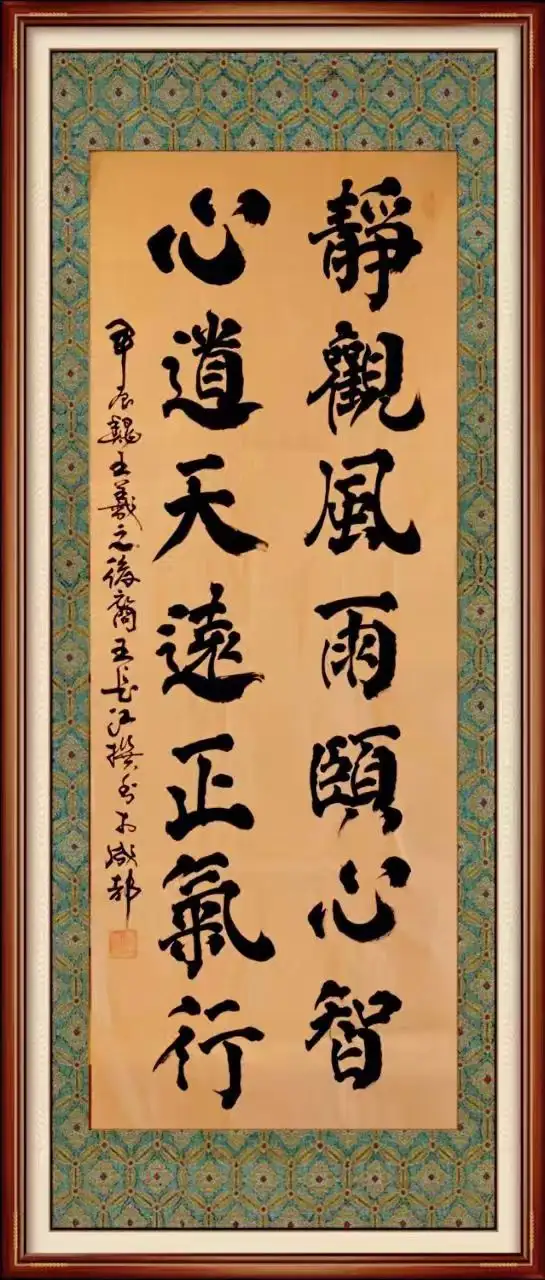 靜觀風雨頤心智
心道天遠正氣行
甲辰魏王羲之後裔王長江撰書於成都